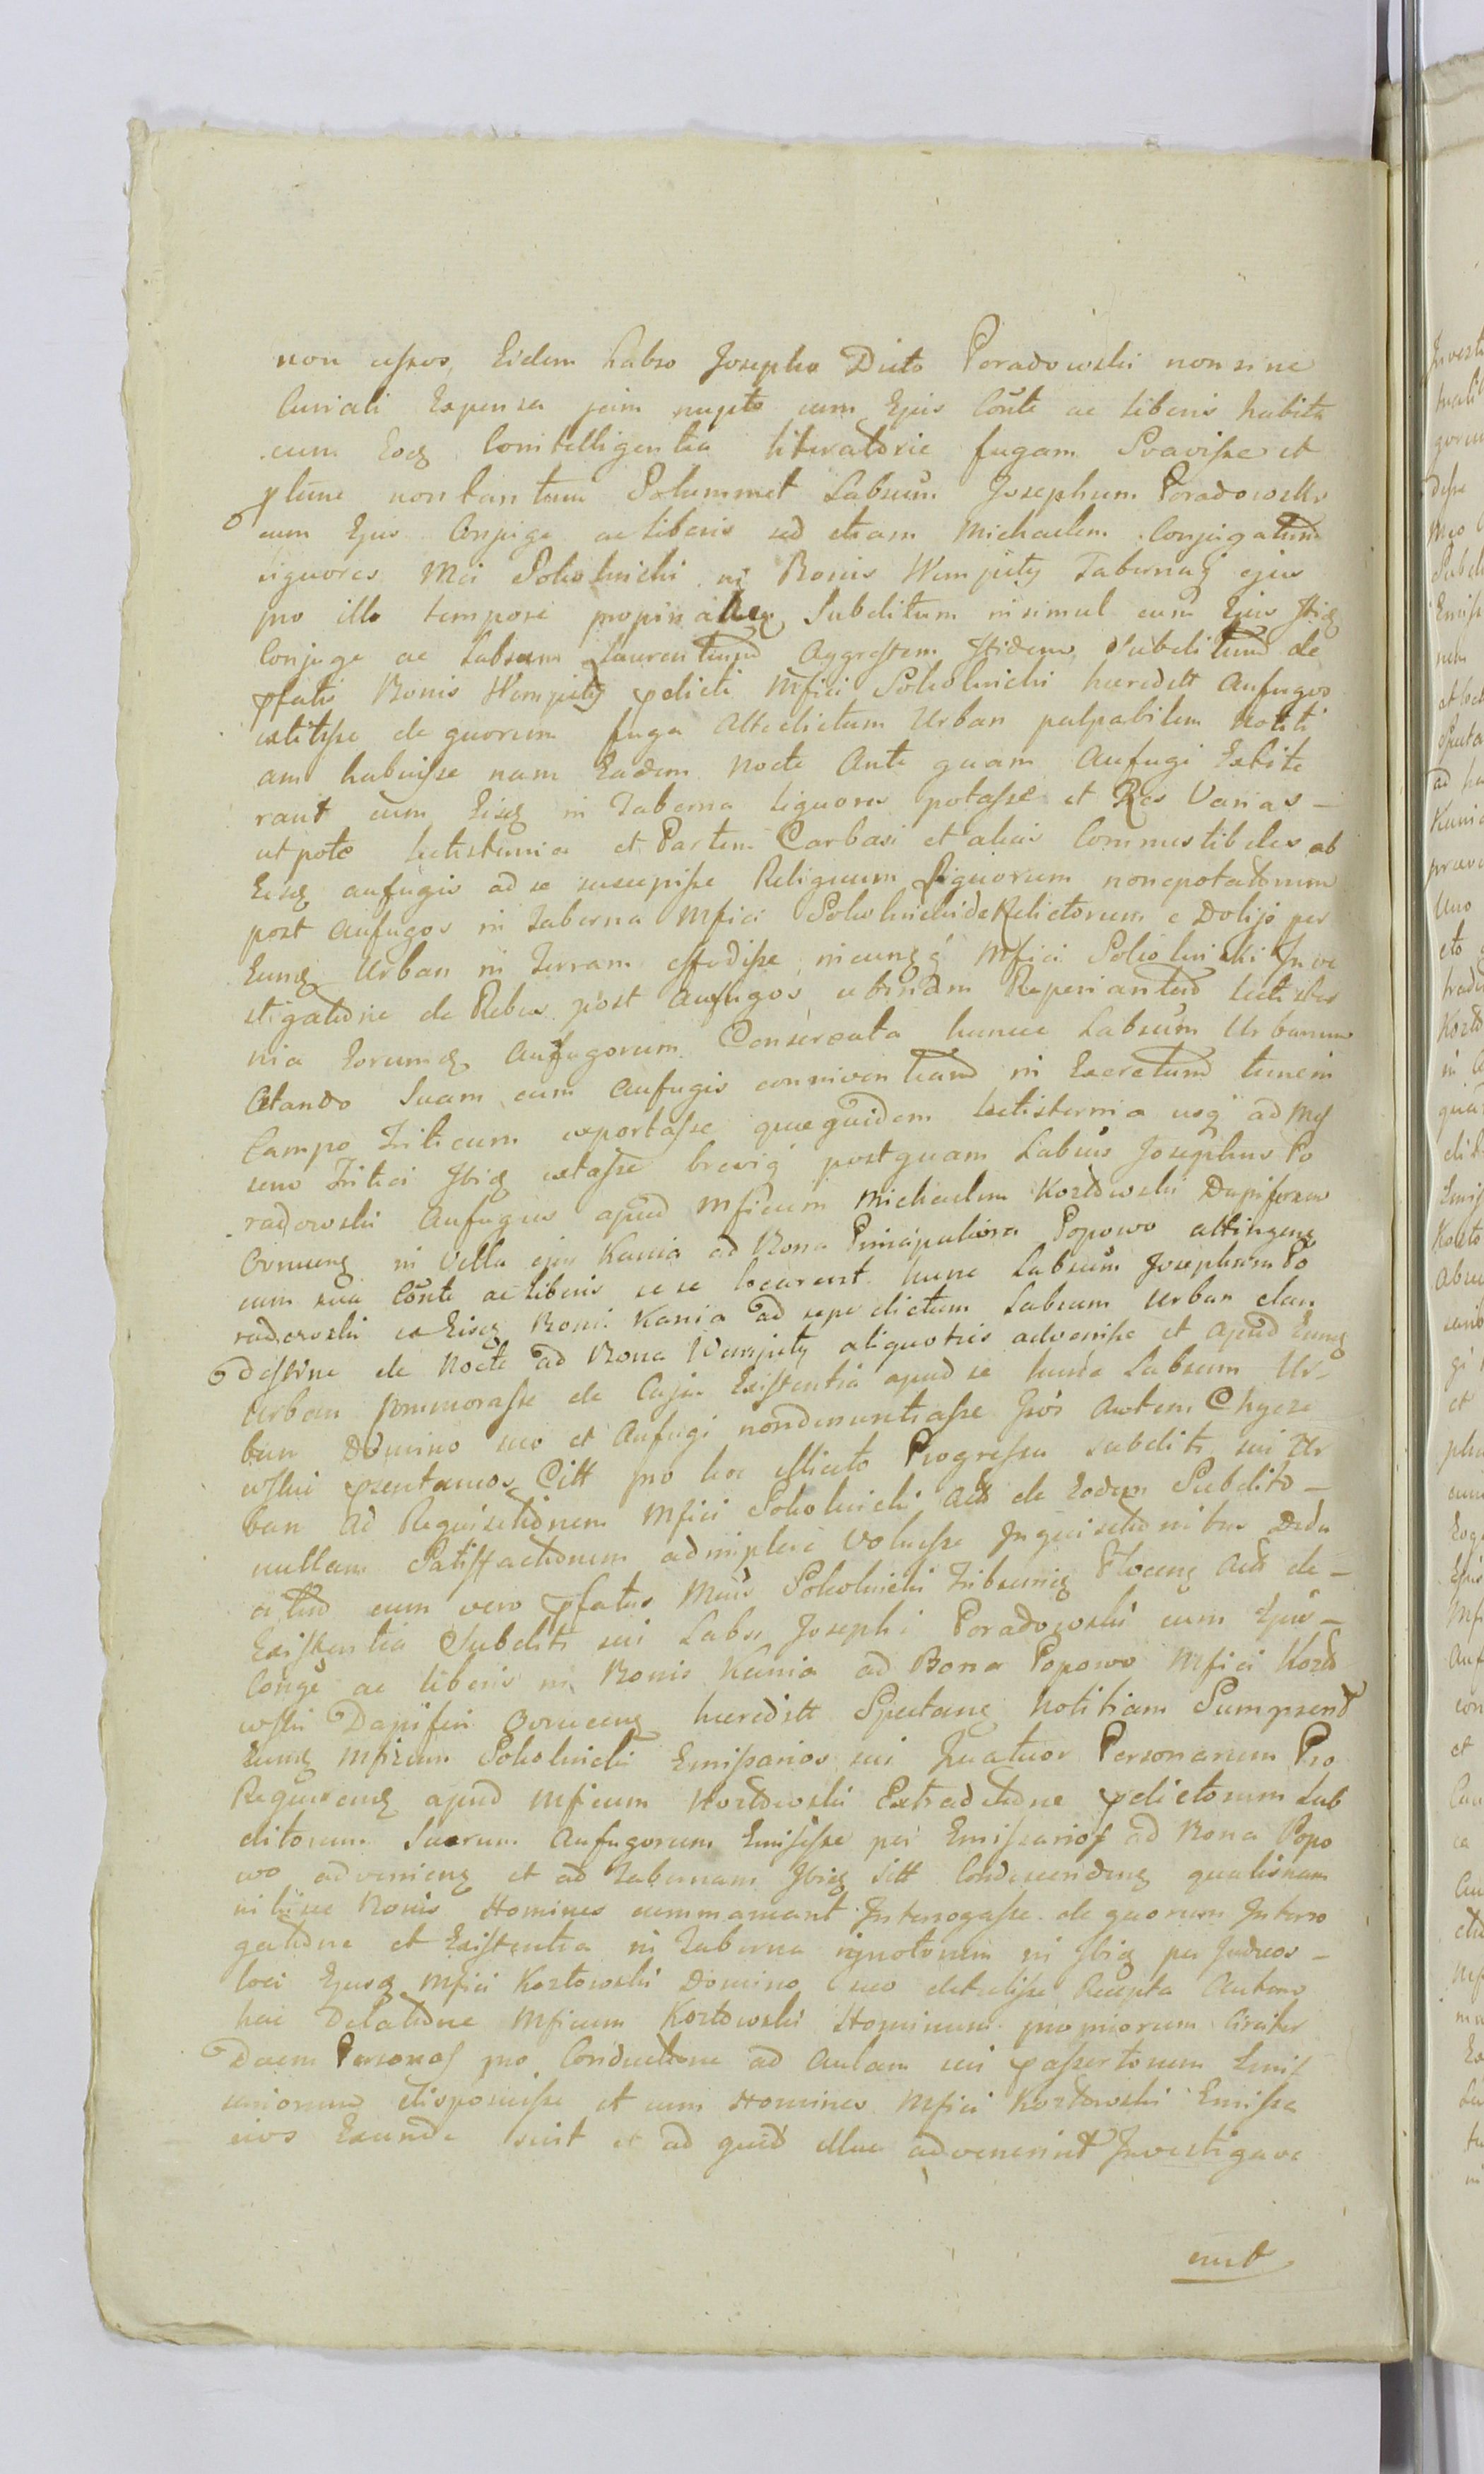 non usos, Eidem Labso Josepho Dicto Poradowski non sine
Curiali Expensa jam nupto cum Ejus Conte ac liberis habita
cum Eoq Comitelligentia literatorie fugam Svavisse et
plene non tantum Solummet Labsum Josephum Poradowski
cum Ejus Conjuge ac liberis sed etiam Michaelem Conjugatum
liquores Mci Sokolnicki in Bonis Wempity Tabernaq ejus
pro illo tempore propin Subditum insimul cum Ejus Ibiq
Conjuge ac Labsum Laurentium Aggrestem Ibidem Subditum de
pfatis Bonis Wempity pdicti Mfici Sokolnicki haeredtt Aufugos
extitisse de quorum fuga Attedictum Urban palpabilem Notiti
am habuisse nam Eadem Nocte Ante quam Aufugi Extite
rant cum Eisq in Taberna liquores potasse et Res Varias –
utpote Lectisternia et Partem Carbasi et alias Commestibiles ab
Eisq aufugis ad se suscepisse Reliquum Liquorum nonepotatorum
post Aufugos in Taberna Mfici Sokolnicki de Relictorum e Dolijs per
Eumq Urban in Terram effudisse, Mfici Sokolnicki Inve
stigatione de Rebus post Aufugos ubinam Reperiantur Lectister
nia Eorumq Aufugorum Conservata hunce Labsum Urbanum
Celando Suam cum Aufugis conniventiam in Excretum tunc in
Campo Triticum exportasse quaequidem Lectisternia usq ad Mes
sem Tritici Ibiq extasse breviq postquam Labsus Josephus Po
radowski Aufugus apud Mficum Michaelem Kozlowski Dapiferum
Ovruceng in Villa ejus Kania ad Bona Principaliora Popowo attingeng
cum sua Conte ac liberis se se locarent hunc Labsum Josephum Po
radowski ex Eisq Bonis Kania ad sepe dictum Labsum Urban clan
destine de Nocte ad Bona Wempity aliquoties advenisse et apud Eumq
Urban commorasse de Cujus Existentia apud se hunce Labsum Ur-
ban Domino suo et Aufugi nondenuntiasse Autem Chyze
wski psentamos Citt pro hoc illicito Progressu subditi sui Ur
ban Ad Requisitionem Mfici Sokolnicki Actt de Eodem Subdito –
nullam Satisfactionem adimplere Voluisse Inquisitionibus Dedu
citur cum vero pfatus Mcus Sokolnicki Tribuniq Ploceng Actt de –
Existentia Subditi sui Labsi Josephi Poradowski cum Ejus –
Conge ac liberis in Bonis Kania ad Bona Popowo Mfici Kozlo
wski Dapiferi Ovruceng haeredtt Spectang Notitiam Sumpsend
Eumq Mficum Sokolnicki Emissarios sui Quatuor Personarum Pro
Requireng apud Mficum Kozlowski Extraditione pdictorum Sub
ditorum Suorum Aufugorum Emisisse per Emissarios ad Bona Popo
wo advenieng et ad Tabernam Ibiq Sitt Condescendeng qualisnam
in hisce Bonis Homines commaneant Interrogasse de quorum Interro
gatione et Existentia in Taberna ignotorum in Ibiq per Judaeos –
loci Ejusq Mfici Kozlowski Domino suo detulisse Recepta Autem
hac Delatione Mficum Kozlowski Hominum propriorum Circiter
Decem Personas pro Conductione ad Aulam sui passertorum Emis
sariorum disposuisse et cum Homines Mfici Kozlowski Emissa
rios Exunde sint et ad quid illuc advenerint Investigave
runt